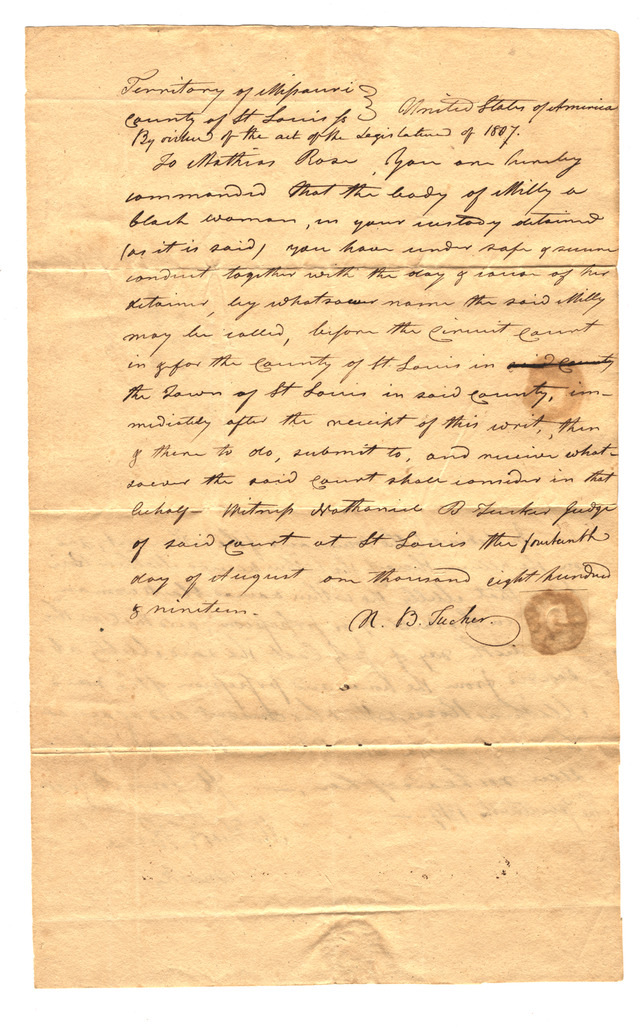 Territory of Missouri
County of St Louis ss } United States of America
By virtue of the act of the Legislature of 1807.
To Mathias Rose, You are hereby
commanded that the body of Milly a
black woman, in your custody detained
(as it is said) you have under safe & secure
conduct together with the day & cause of her
detainer, by whatsoever name the said Milly
may be called, before the Circuit Court
in & for the County of St Louis in said County
the Town of St Louis in said County, im-
mediately after the receipt of this writ, then
& there to do, submit to, and receive what-
soever the said Court shall consider in that
behalf- Witness Nathaniel B Tucker Judge
of said Court at St Louis the fourteenth
day of August one thousand eight hundred
& nineteen.
N. B. Tucker.